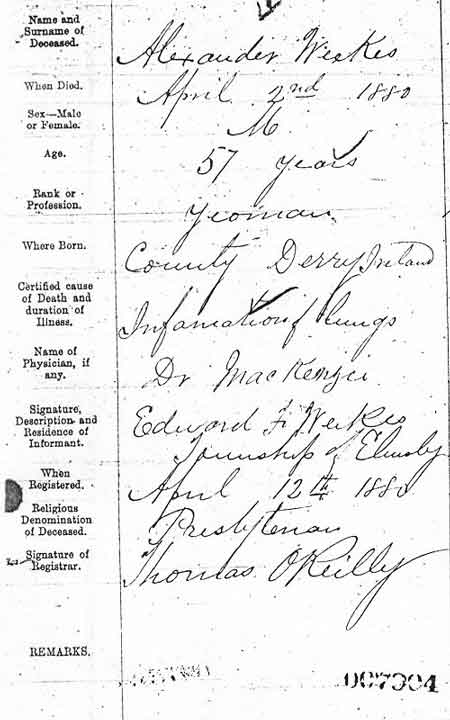 Name and
Surname of
Deceased.
Alexander Weekes
When Died.
April 2nd 1880
Sex—Male
or Female.
M
Age.
57 years
Rank or
Profession.
Yeoman
Where Born.
County Derry Ireland
Certified cause
of Death and
duration of
Illness.
Infamation of lungs
Name of
Physician, if
any.
Dr MacKenzie
Signature,
Description and
Residence of
Informant.
Edward F. Weekes
Township of
When
Registered.
April 12th 1880
Religious
Denomination
of Deceased.
Presbyterian
Signature of
Registrar.
Thomas O'Reilly
REMARKS.
007904